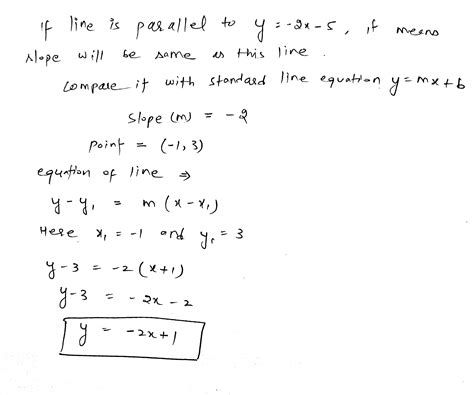 If line is parallel to y = -2x - 5, it means
slope will be same as this line.
Compare it with standard line equation y = mx + b
slope (m) = -2
point = (-1, 3)
equation of line ⇒
y - y₁ = m (x - x₁)
Here x₁ = -1 and y₁ = 3
y - 3 = -2 (x + 1)
y - 3 = -2x - 2
y = -2x + 1